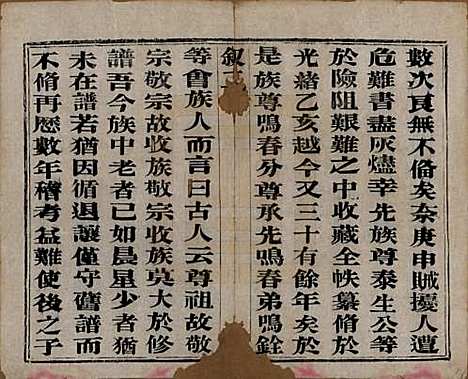 數次良無不脩矣奈庚申賊擾人遭
危難書盡灰燼幸先族尊泰生公等
於險阻艱難之中收藏全帙纂脩於
光緒乙亥越今又三十有餘年矣於
是族尊鳴春分尊承先鳴春弟鳴銓
叙
等會族人而言曰古人云尊祖故敬
宗敬宗故收族敬宗收族莫大於修
譜吾今族中老者已如晨星少者猶
未在譜若猶因循退讓僅守舊譜而
不脩再歷數年稽考益難使後之子